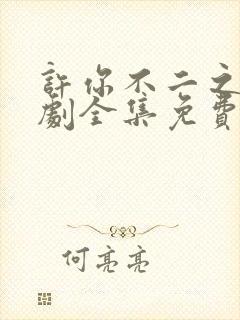 許你不二之
劇全集免費
何亮亮